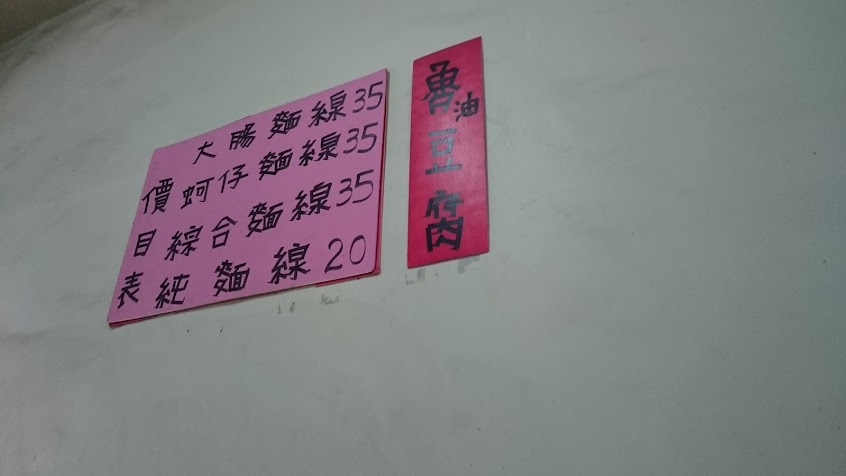 價目表
大腸麵線35
蚵仔麵線35
綜合麵線35
純麵線20
魯油豆腐